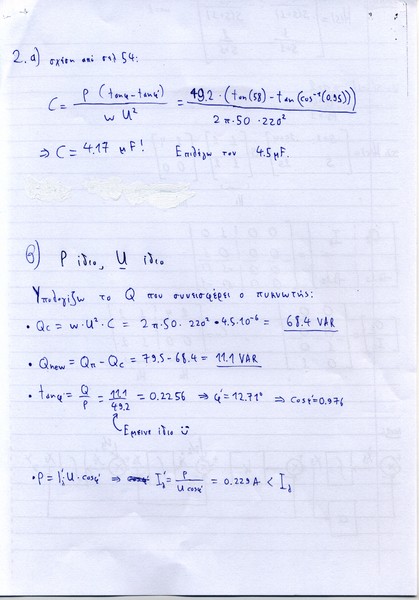 2. a) σχέση από σελ 54:
C = P (tanφ - tanφ') / w U² = 49.2 · (tan(58) - tan(cos⁻¹(0.95))) / 2π·50 · 220²
⇒ C = 4.17 μF! Επιλέγω τον 4.5μF.
β) P ίδιο, U ίδιο
Υπολογίζω το Q που συνεισφέρει ο πυκνωτής:
• Qc = w·U²·C = 2π·50·220²·4.5·10⁻⁶ = 68.4 VAR
• Qnew = Qπ - Qc = 79.5 - 68.4 = 11.1 VAR
• tanφ' = Q/P = 11.1/49.2 = 0.2256 ⇒ φ' = 12.71° ⇒ cosφ' = 0.976
Έμεινε ίδιο
• P = I'U·cosφ' ⇒ I' = P / U cosφ' = 0.229 A < I